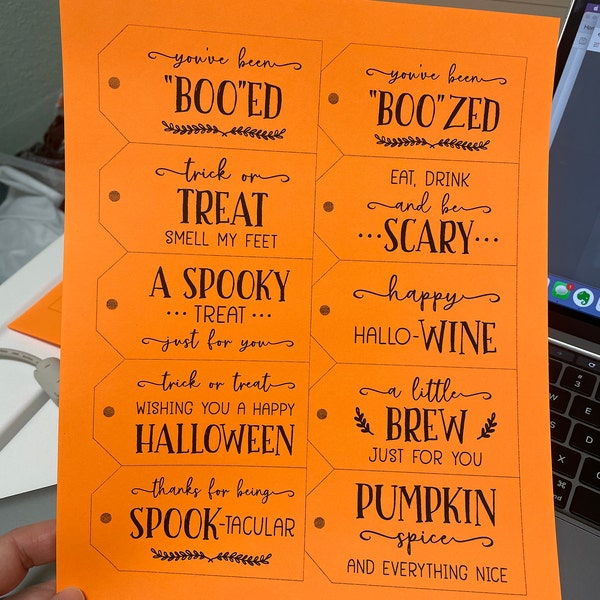 you've been
"BOO"ED
trick or
TREAT
SMELL MY FEET
A SPOOKY
••• TREAT •••
just for you
trick or treat
WISHING YOU A HAPPY
HALLOWEEN
thanks for being
SPOOK-TACULAR
you've been
"BOO"ZED
EAT, DRINK
and be
•••SCARY•••
happy
HALLO-WINE
a little
BREW
JUST FOR YOU
PUMPKIN
spice
AND EVERYTHING NICE